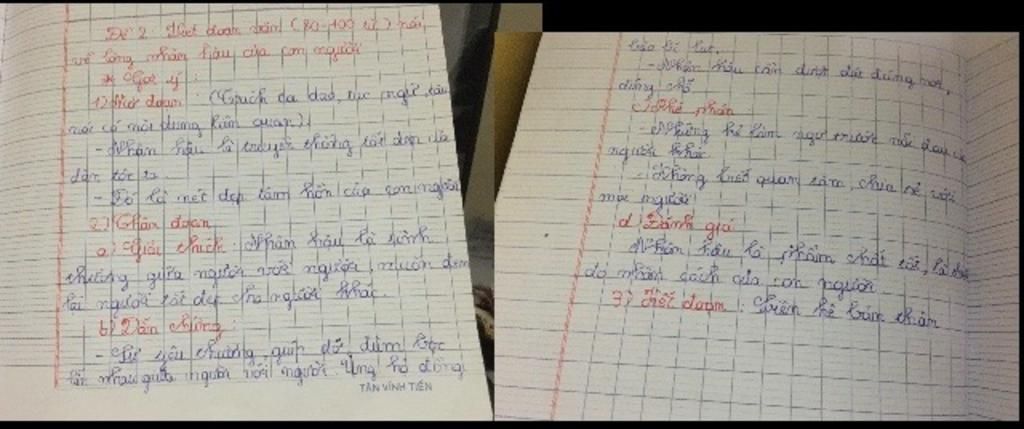 Đề 2: Viết đoạn văn (80-100 từ) nói
về lòng nhân hậu của con người
* Gợi ý:
1) Mở đoạn: (Trích ca dao, tục ngữ, câu
nói có nội dung liên quan)
- Nhân hậu là truyền thống tốt đẹp của
dân tộc ta.
- Đó là nét đẹp tâm hồn của con người
2) Thân đoạn
a) Giải thích: Nhân hậu là tình
thương giữa người với người, muốn đem
lại người tốt đẹp cho người khác.
b) Dẫn chứng
- Sự yêu thương, giúp đỡ, đùm bọc
lẫn nhau giữa người với người. Ủng hộ đồng
TÂN VĨNH TIẾN
bào lũ lụt.
- Nhân hậu cần được đặt đúng nơi,
đúng chỗ
c) Phê phán
- Những kẻ làm ngơ trước nỗi đau của
người khác
- Không biết quan tâm, chia sẻ với
mọi người
d) Đánh giá
Nhân hậu là phẩm chất tốt, là
đo nhân cách của con người
3) Kết đoạn: Liên hệ bản thân